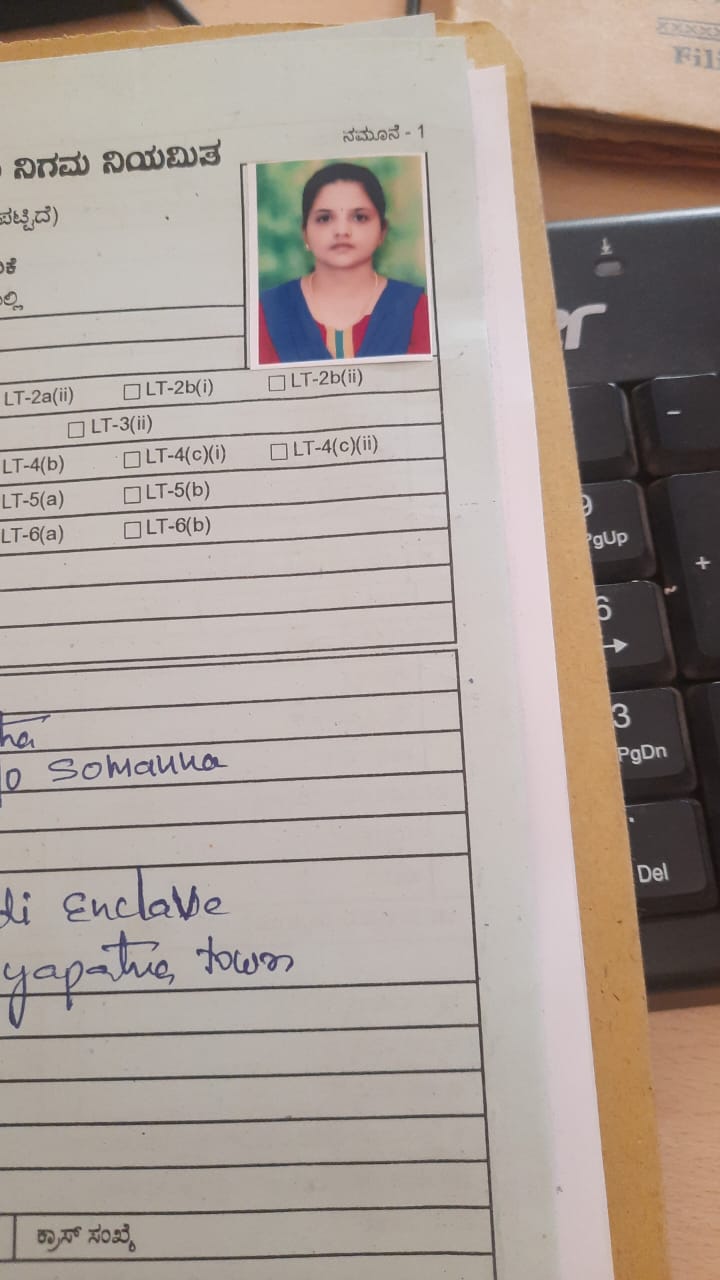 ನಮೂನೆ - 1
ನಿಗಮ ನಿಯಮಿತ
LT-2a(ii) LT-2b(i) LT-2b(ii)
LT-3(ii)
LT-4(b) LT-4(c)(i) LT-4(c)(ii)
LT-5(a) LT-5(b)
LT-6(a) LT-6(b)
Somanna
Enclave
town
ಕ್ರಾಸ್ ಸಂಖ್ಯೆ
-
PgUp
+
6
3
PgDn
Del